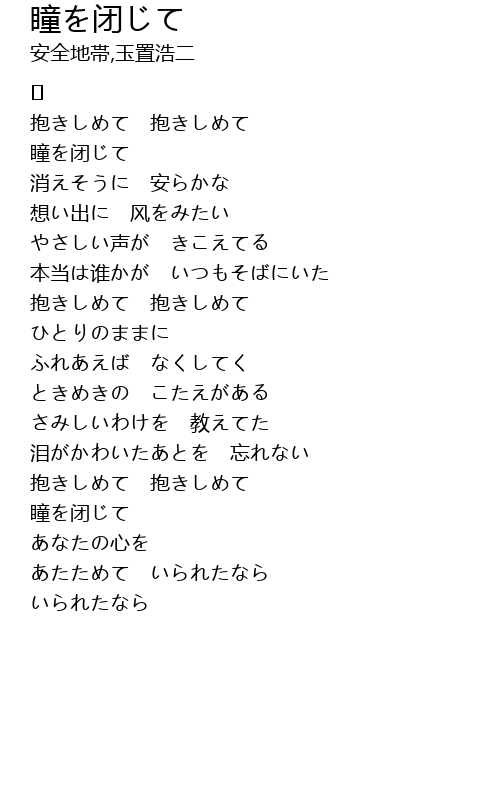 瞳を闭じて
安全地帯,玉置浩二
抱きしめて　抱きしめて
瞳を闭じて
消えそうに　安らかな
想い出に　风をみたい
やさしい声が　きこえてる
本当は谁かが　いつもそばにいた
抱きしめて　抱きしめて
ひとりのままに
ふれあえば　なくしてく
ときめきの　こたえがある
さみしいわけを　教えてた
泪がかわいたあとを　忘れない
抱きしめて　抱きしめて
瞳を闭じて
あなたの心を
あたためて　いられたなら
いられたなら